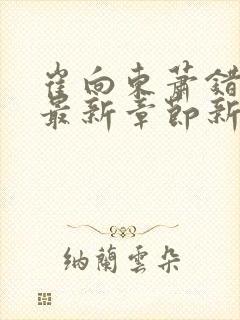 崔向東蕭錯
最新章節新
納蘭雲朵